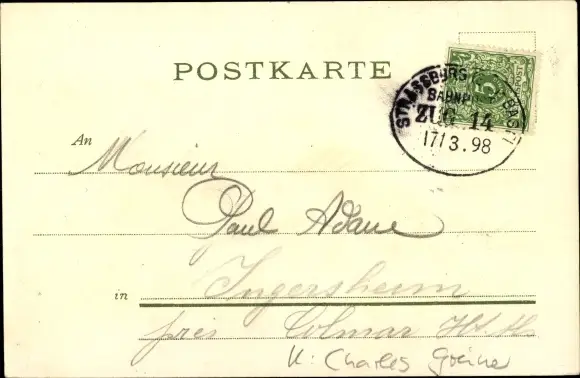 POSTKARTE
STRASSBURG (ELS.) BASEL
BAHNPOST
ZUG 14
17/3.98
An
Monsieur
Paul Adam
in Ingersheim
près Colmar Ht. Rh.
K: Charles Greiner